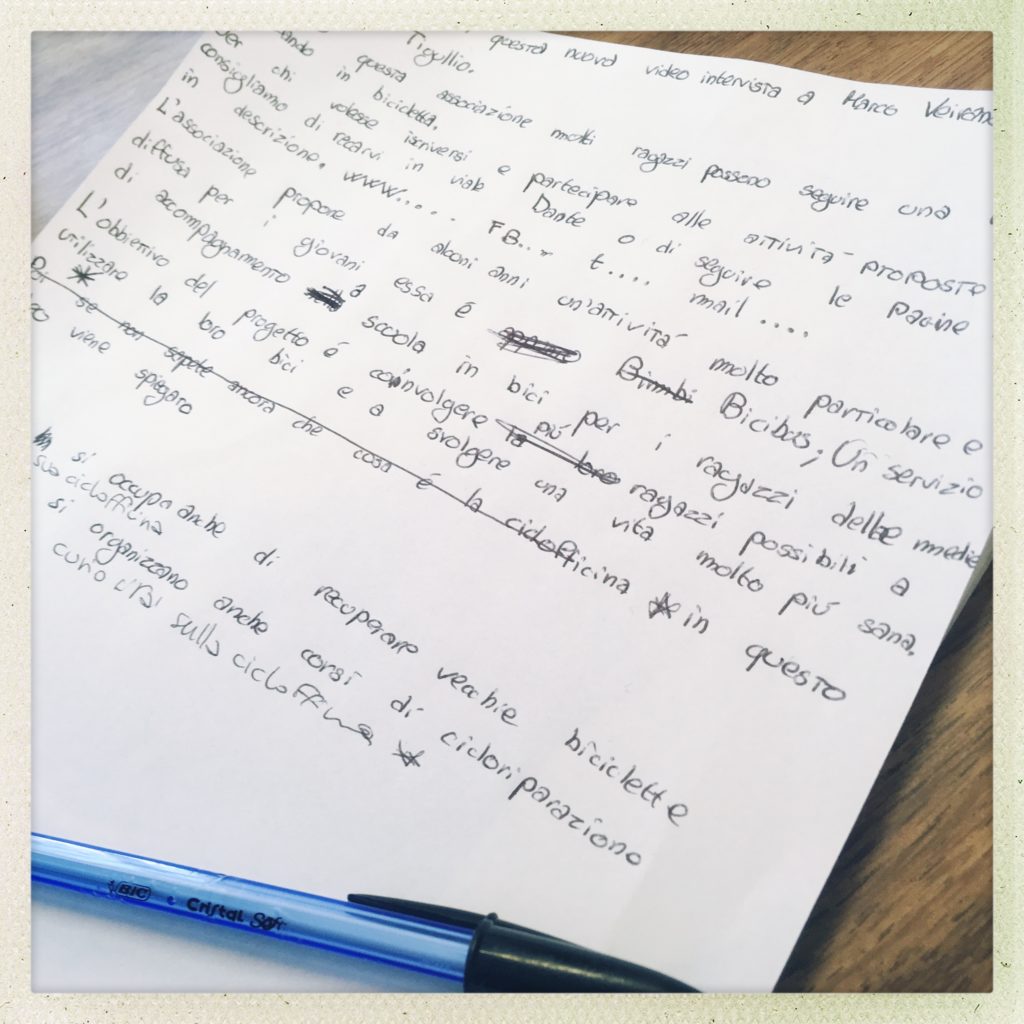 questa nuova video intervista a Marco
Tigullio.
questa associazione molti ragazzi possono seguire una
in bicicletta.
per chi volesse iscriversi e partecipare alle attività proposte
consigliamo di recarvi in viale Dante o di seguire le pagine
in descrizione. www..... FB... t.... mail ....
L'associazione propone da alcuni anni un'attività molto particolare e
diffusa per i giovani essa é Bimbi Bicibus; Un servizio
di accompagnamento a scuola in bici per i ragazzi delle medie
L'obbiettivo del progetto é coinvolgere la loro più ragazzi possibili a
utilizzare la loro bici e a svolgere una vita molto più sana.
* se non sapete ancora che cosa é la cicloficina * in questo
viene spiegato
si occupa anche di recuperare vecchie biciclette
sua cicloffina
si organizzano anche corsi di cicloriparazione
sulla cicloffina *
BIC Cristal Soft